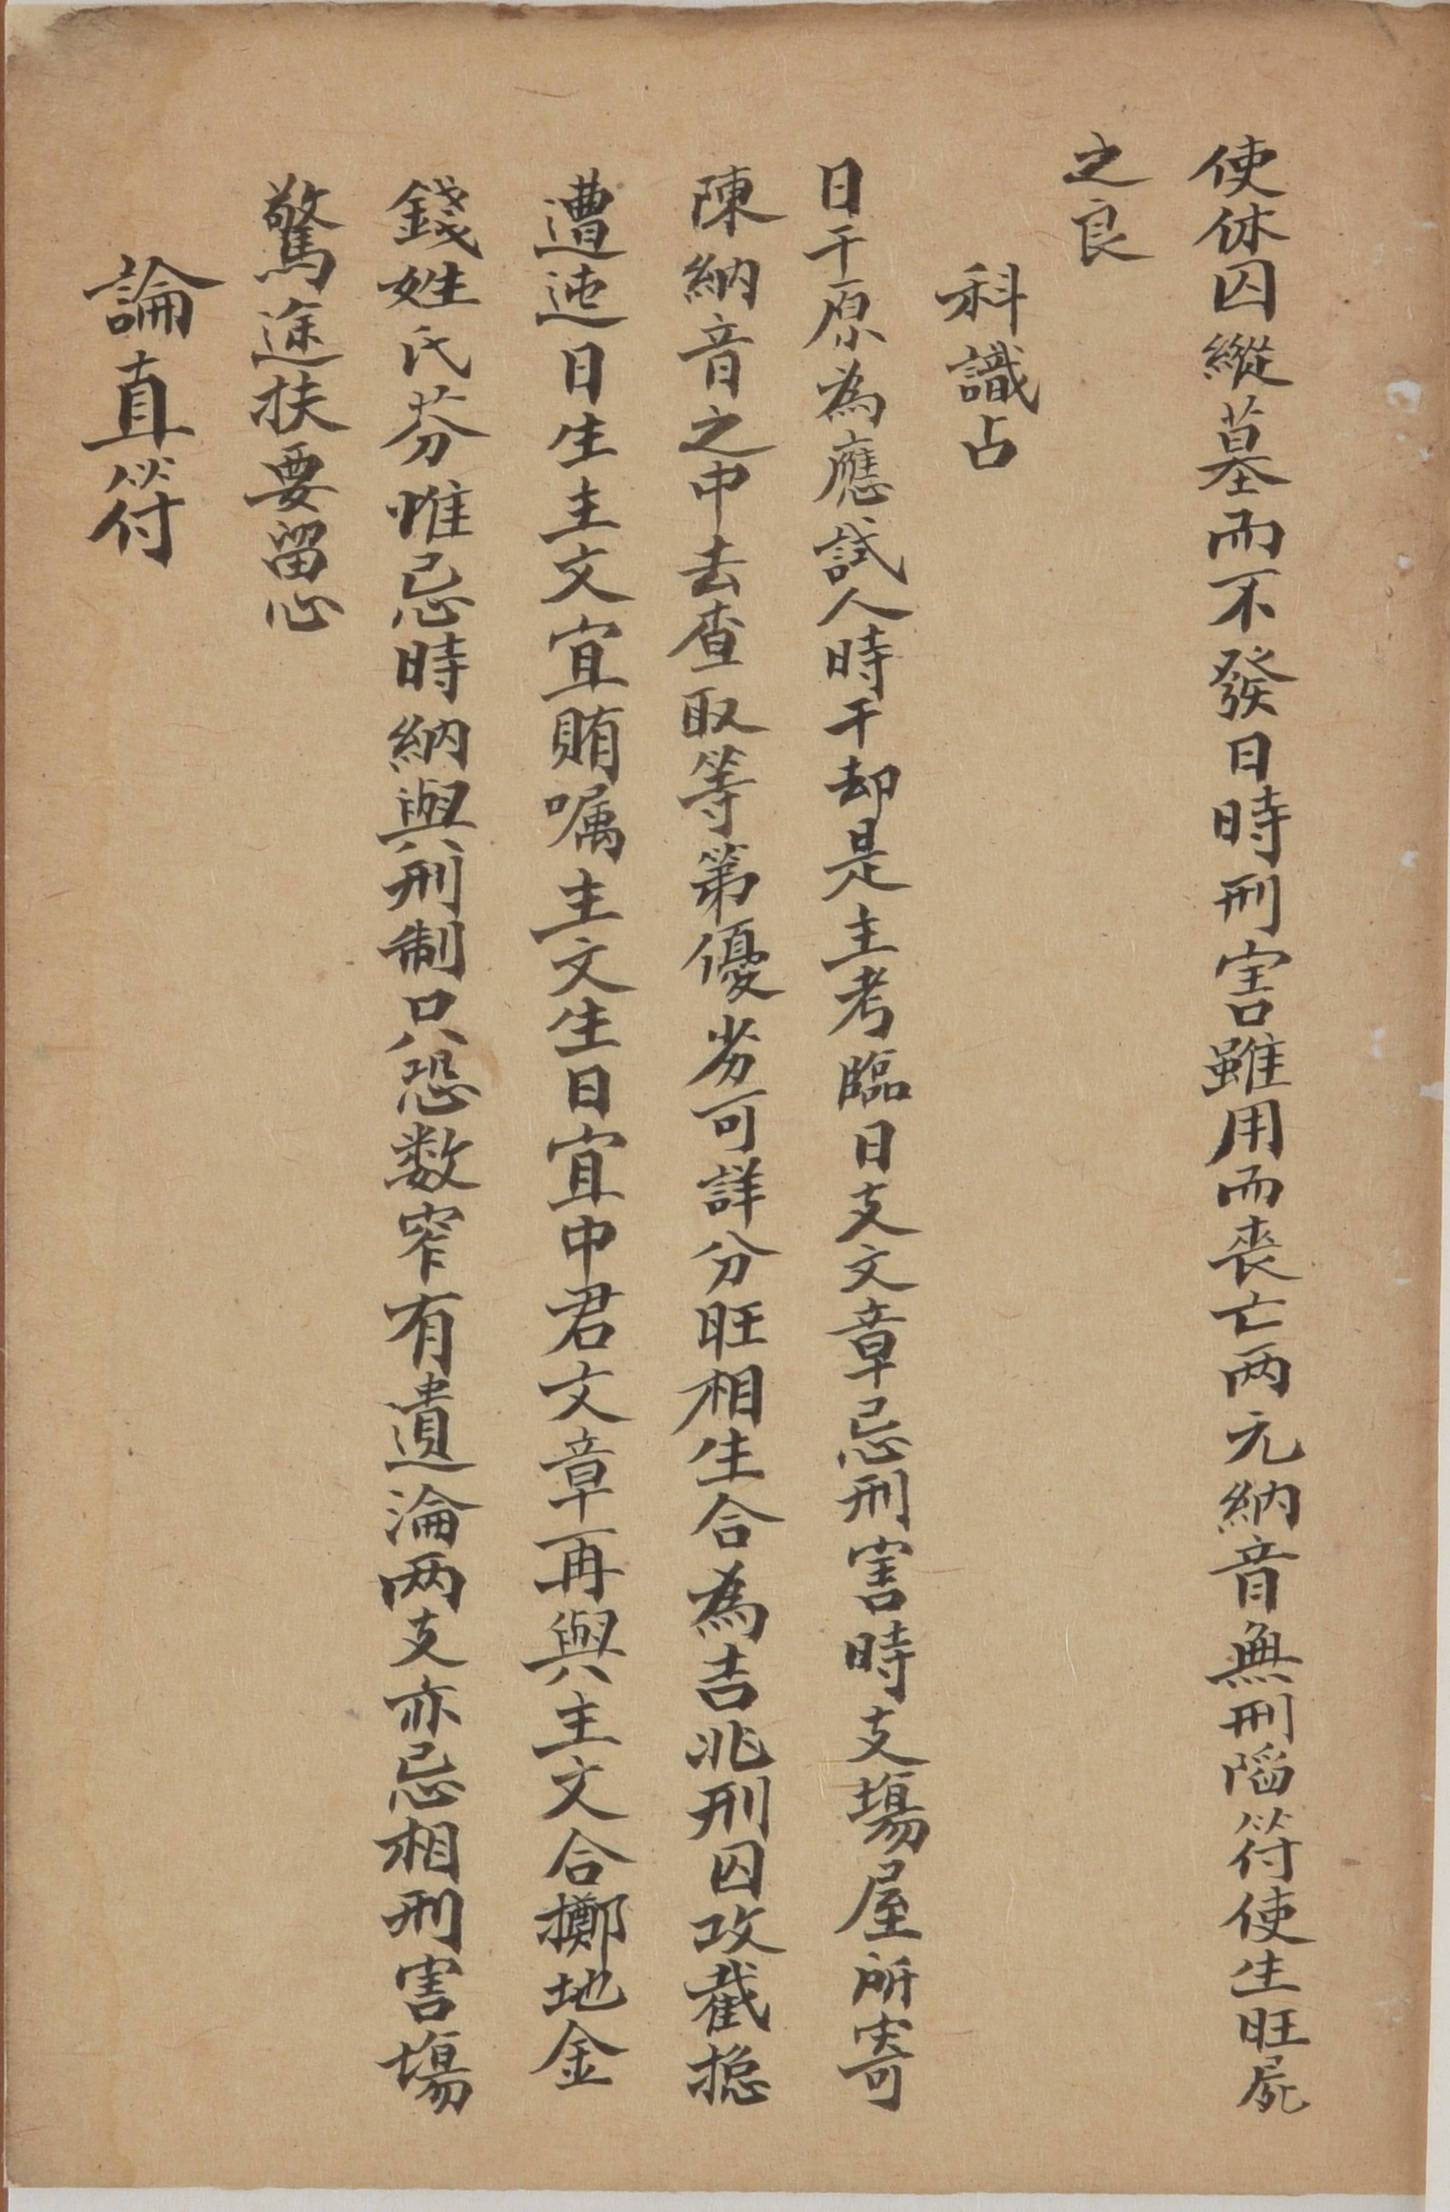 使休囚縱墓而不發日時刑害雖用而丧亡两元納音無刑陷符使生旺屍
之良
科識占
日干原為應試人時干却是主考臨日支文章忌刑害時支塲屋所寄
陳納音之中去查取等第優劣可詳分旺相生合為吉兆刑囚攻截揔
遭迍日生主文宜賄嘱主文生日宜中君文章再與主文合擲地金
錢姓氏芬惟忌時納與刑制只恐数窄有遺淪两支亦忌相刑害塲
驚途扶要留心
論直符